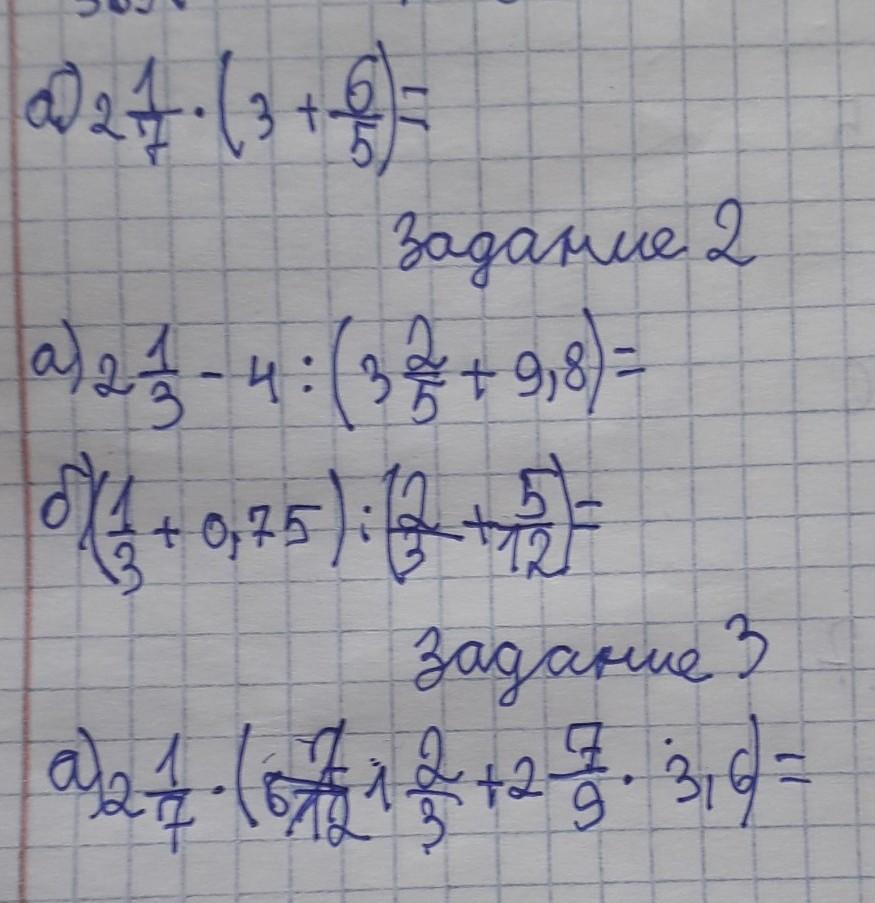 а) 2 1/7 · (3 + 6/5) =
Задание 2
а) 2 1/3 - 4 : (3 2/5 + 9,8) =
б) (1/3 + 0,75) : (2/3 + 5/12) =
Задание 3
а) 2 1/7 · (6 7/12 : 1 2/3 + 2 7/9 · 3,6) =